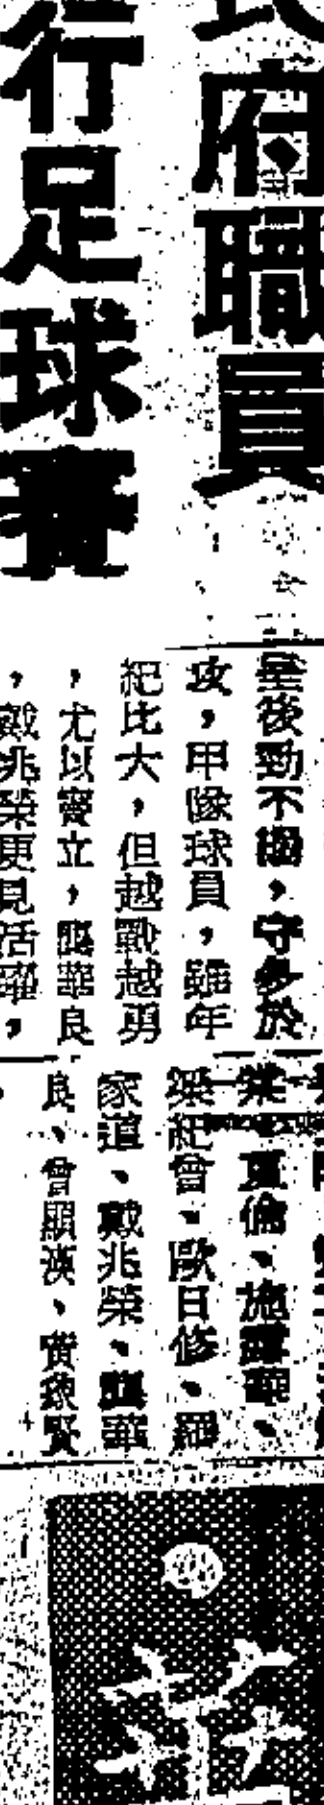 府職員
行足球賽
後勁不繼，守多於
攻，甲隊球員，雖年
紀比大，但越戰越勇
，尤以寶立，龔華良
，戴兆榮更見活躍，
倫、施
梁紀會、歐日修、羅
家道、戴兆榮、龔華
良、曾顯漢、賢